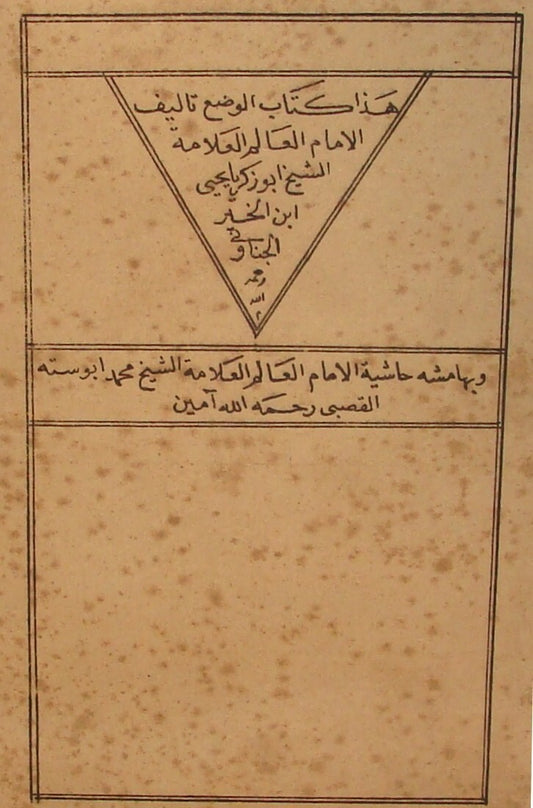 هذا كتاب الوضع تاليف
الامام العالم العلامة
الشيخ ابو زكريا يحيى
ابن الخير
الجناوني
رحمه
الله
وبهامشه حاشية الامام العالم العلامة الشيخ محمد ابو سته
القصبي رحمه الله آمين